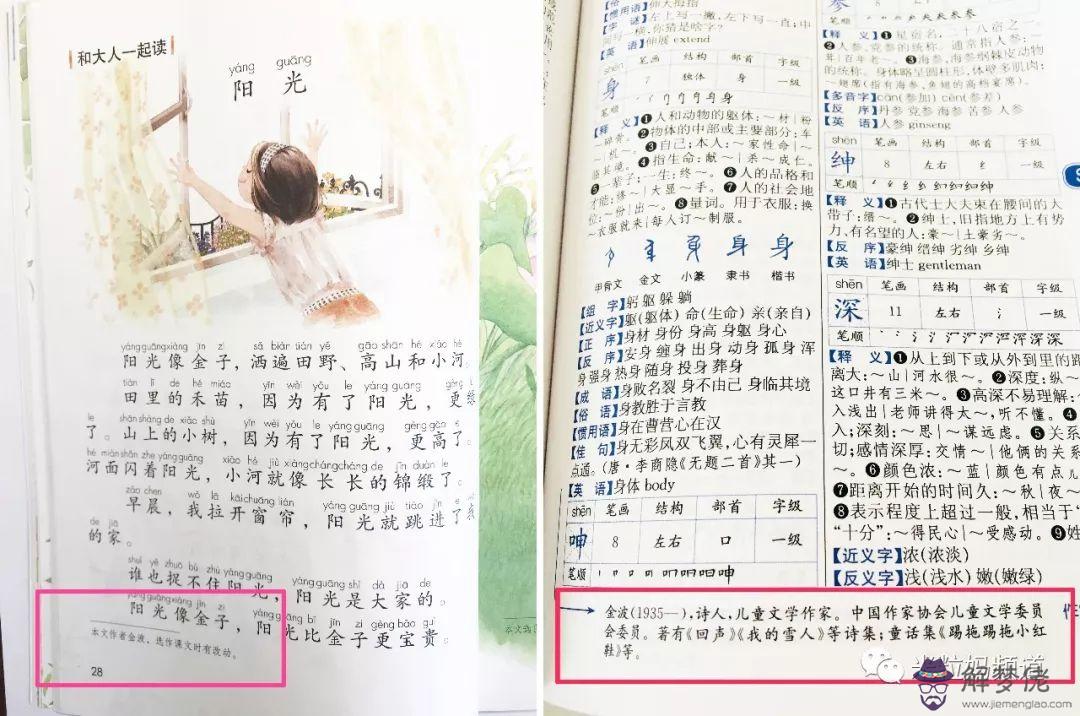 和大人一起读
yáng guāng
阳 光
yáng guāng xiàng jīn zi sǎ biàn tián yě gāo shān hé xiǎo hé
阳光像金子，洒遍田野、高山和小河。
tián lǐ de hé miáo yīn wèi yǒu le yáng guāng gèng
田里的禾苗，因为有了阳光，更
le shān shàng de xiǎo shù yīn wèi yǒu le yáng guāng gèng gāo
了。山上的小树，因为有了阳光，更高了。
hé miàn shǎn zhe yáng guāng xiǎo hé jiù xiàng cháng cháng de jǐn duàn le
河面闪着阳光，小河就像长长的锦缎了。
zǎo chen wǒ lā kāi chuāng lián yáng guāng jiù tiào jìn
早晨，我拉开窗帘，阳光就跳进了我
de jiā
的家。
shuí yě zhuō bú zhù yáng guāng yáng guāng shì dà jiā de
谁也捉不住阳光，阳光是大家的。
yáng guāng xiàng jīn zi yáng guāng bǐ jīn zi gèng bǎo guì
阳光像金子，阳光比金子更宝贵。
本文作者金波，选作课文时有改动。
28
本文选
【惯用语】伸大拇指
【字 谜】左上写一撇，左下写一直；中
间写一横，你猜是啥字？
【英 语】伸展 extend
shēn 笔画 结构 部首 字级
身 7 独体 身 一级
笔顺
【释 义】❶人和动物的躯体：～材｜粉
～碎骨。❷物体的中部或主要部分：车
～｜机～。❸自己；本人：～家性命｜～
临其境。❹指生命：献～｜杀～成仁。
❺一辈子；一生：终～。❻人的品格和
才能：修～｜大显～手。❼人的社会地
位：～份｜出～。❽量词。用于衣服：换
～衣服就来｜每人订～制服。
身 身
甲骨文 金文 小篆 隶书 楷书
【组 字】躬 躯 躲 躺
【近义字】躯(躯体) 命(生命) 亲(亲自)
【正 序】身材 身份 身高 身躯 身心
【反 序】安身 缠身 出身 动身 孤身 浑
身 强身 热身 随身 投身 葬身
【成 语】身败名裂 身不由己 身临其境
【俗 语】身教胜于言教
【惯用语】身在曹营心在汉
【佳 句】身无彩凤双飞翼，心有灵犀一
点通。(唐·李商隐《无题二首》其一)
【英 语】身体 body
shēn 笔画 结构 部首 字级
呻 8 左右 口 一级
笔顺
参
笔顺
【释 义】❶星宿名，二十八宿之一。
❷人参、党参的统称。通常指人参：
❸海参，海参纲棘皮动物
的统称。身体略呈圆柱形，体壁多肌肉：
～翅席(指有海参、鱼翅的高档宴席)。
【多音字】cān(参加) cēn(参差)
【反 序】丹参 党参 海参 苦参 人参
【英 语】人参 ginseng
shēn 笔画 结构 部首 字级
绅 8 左右 纟 一级
笔顺
【释 义】❶古代士大夫束在腰间的大
带子：缙～。❷绅士，旧指地方上有势
力、有名望的人：豪～｜土豪劣～。
【反 序】豪绅 缙绅 劣绅 乡绅
【英 语】绅士 gentleman
shēn 笔画 结构 部首 字级
深 11 左右 氵 一级
笔顺
【释 义】❶从上到下或从外到里的距
离大：～山｜河水很～。❷深度：纵～｜
这口井有三米～。❸高深不易理解：
入浅出｜老师讲得太～，听不懂。❹
入；深刻：～思｜～谋远虑。❺关系
切；感情深厚：交情～｜他俩的关系
～。❻颜色浓：～蓝｜颜色有点儿
❼距离开始的时间久：～秋｜夜～
❽表示程度上超过一般，相当于“
“十分”：～得民心｜～受感动。❾姓
【近义字】浓(浓淡)
【反义字】浅(浅水) 嫩(嫩绿)
金波(1935—)，诗人，儿童文学作家。中国作家协会儿童文学委员
会委员。著有《回声》《我的雪人》等诗集；童话集《踢拖踢拖小红
鞋》等。
解梦佬
www.jiemenglao.com